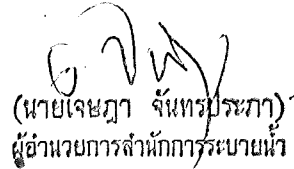 (นายเจษฎา จันทรประภา)
ผู้อำนวยการสำนักการระบายน้ำ